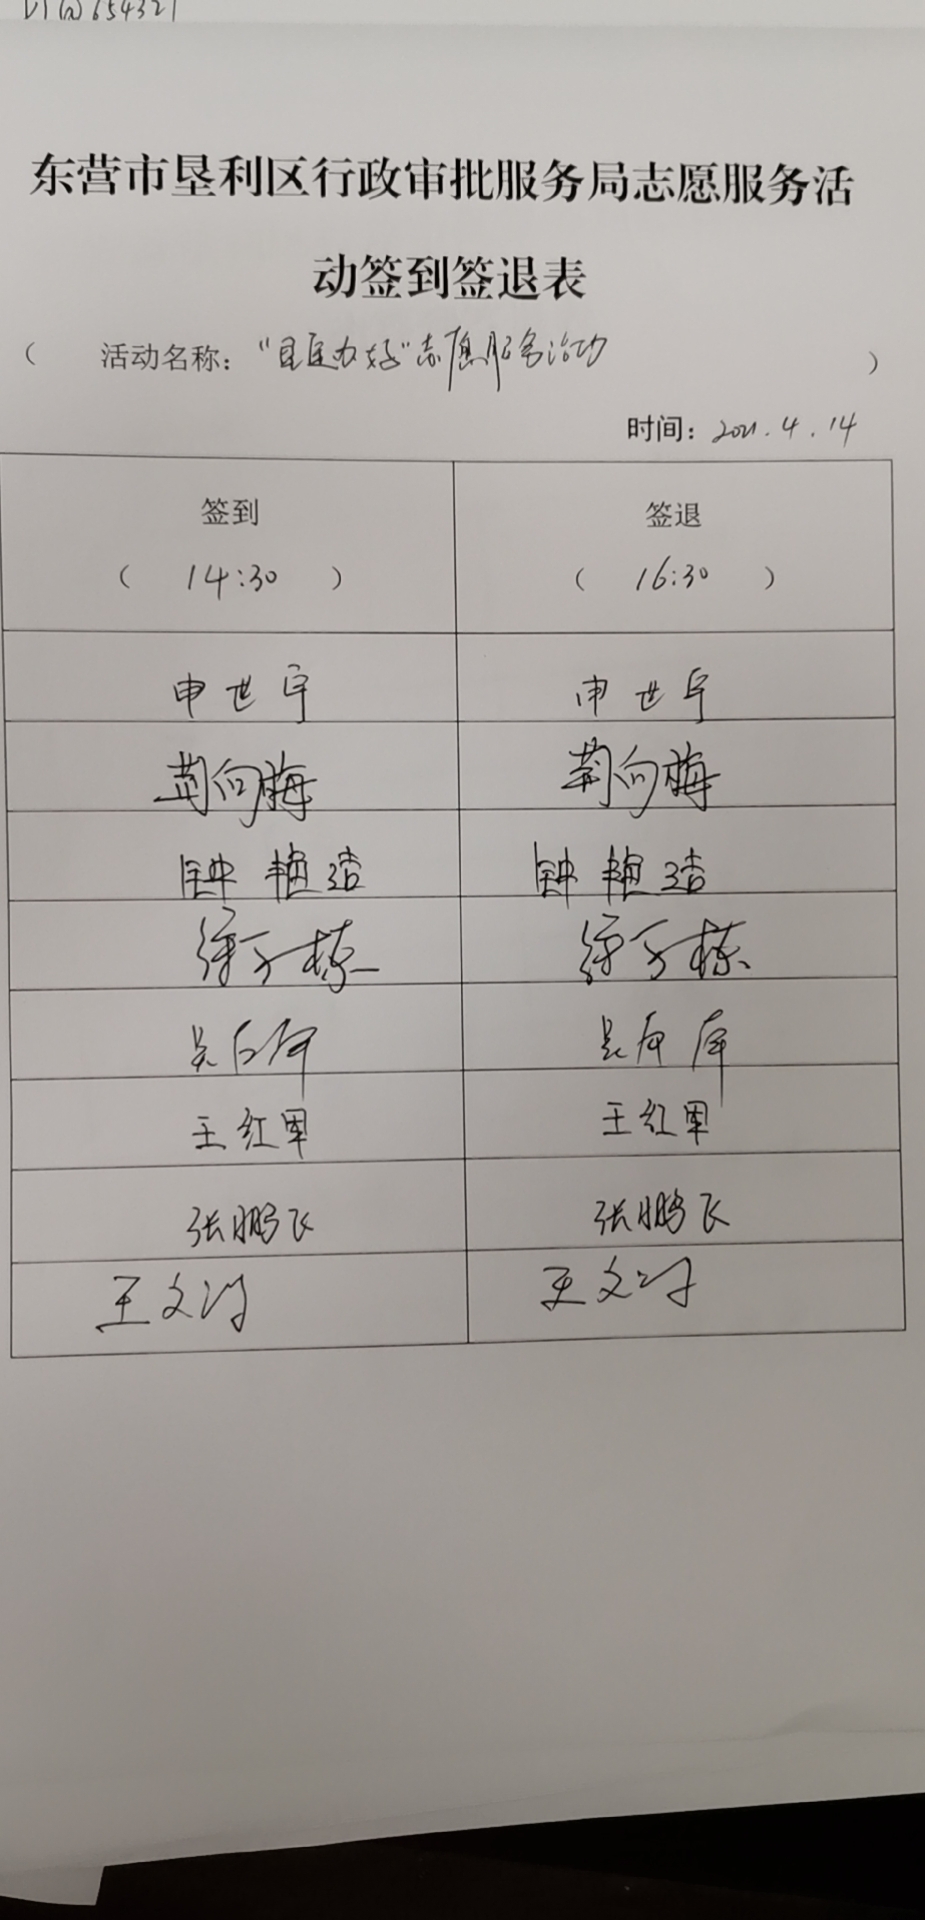 654321
东营市垦利区行政审批服务局志愿服务活
动签到签退表
( 活动名称: "垦医办好"志愿服务活动 )
时间: 2021.4.14
签到 签退
( 14:30 ) ( 16:30 )
申世宇 申世宇
荆向梅 荆向梅
钟艳洁 钟艳洁
徐子栋 徐子栋
吴
王红军 王红军
张鹏飞 张鹏飞
王文 王文